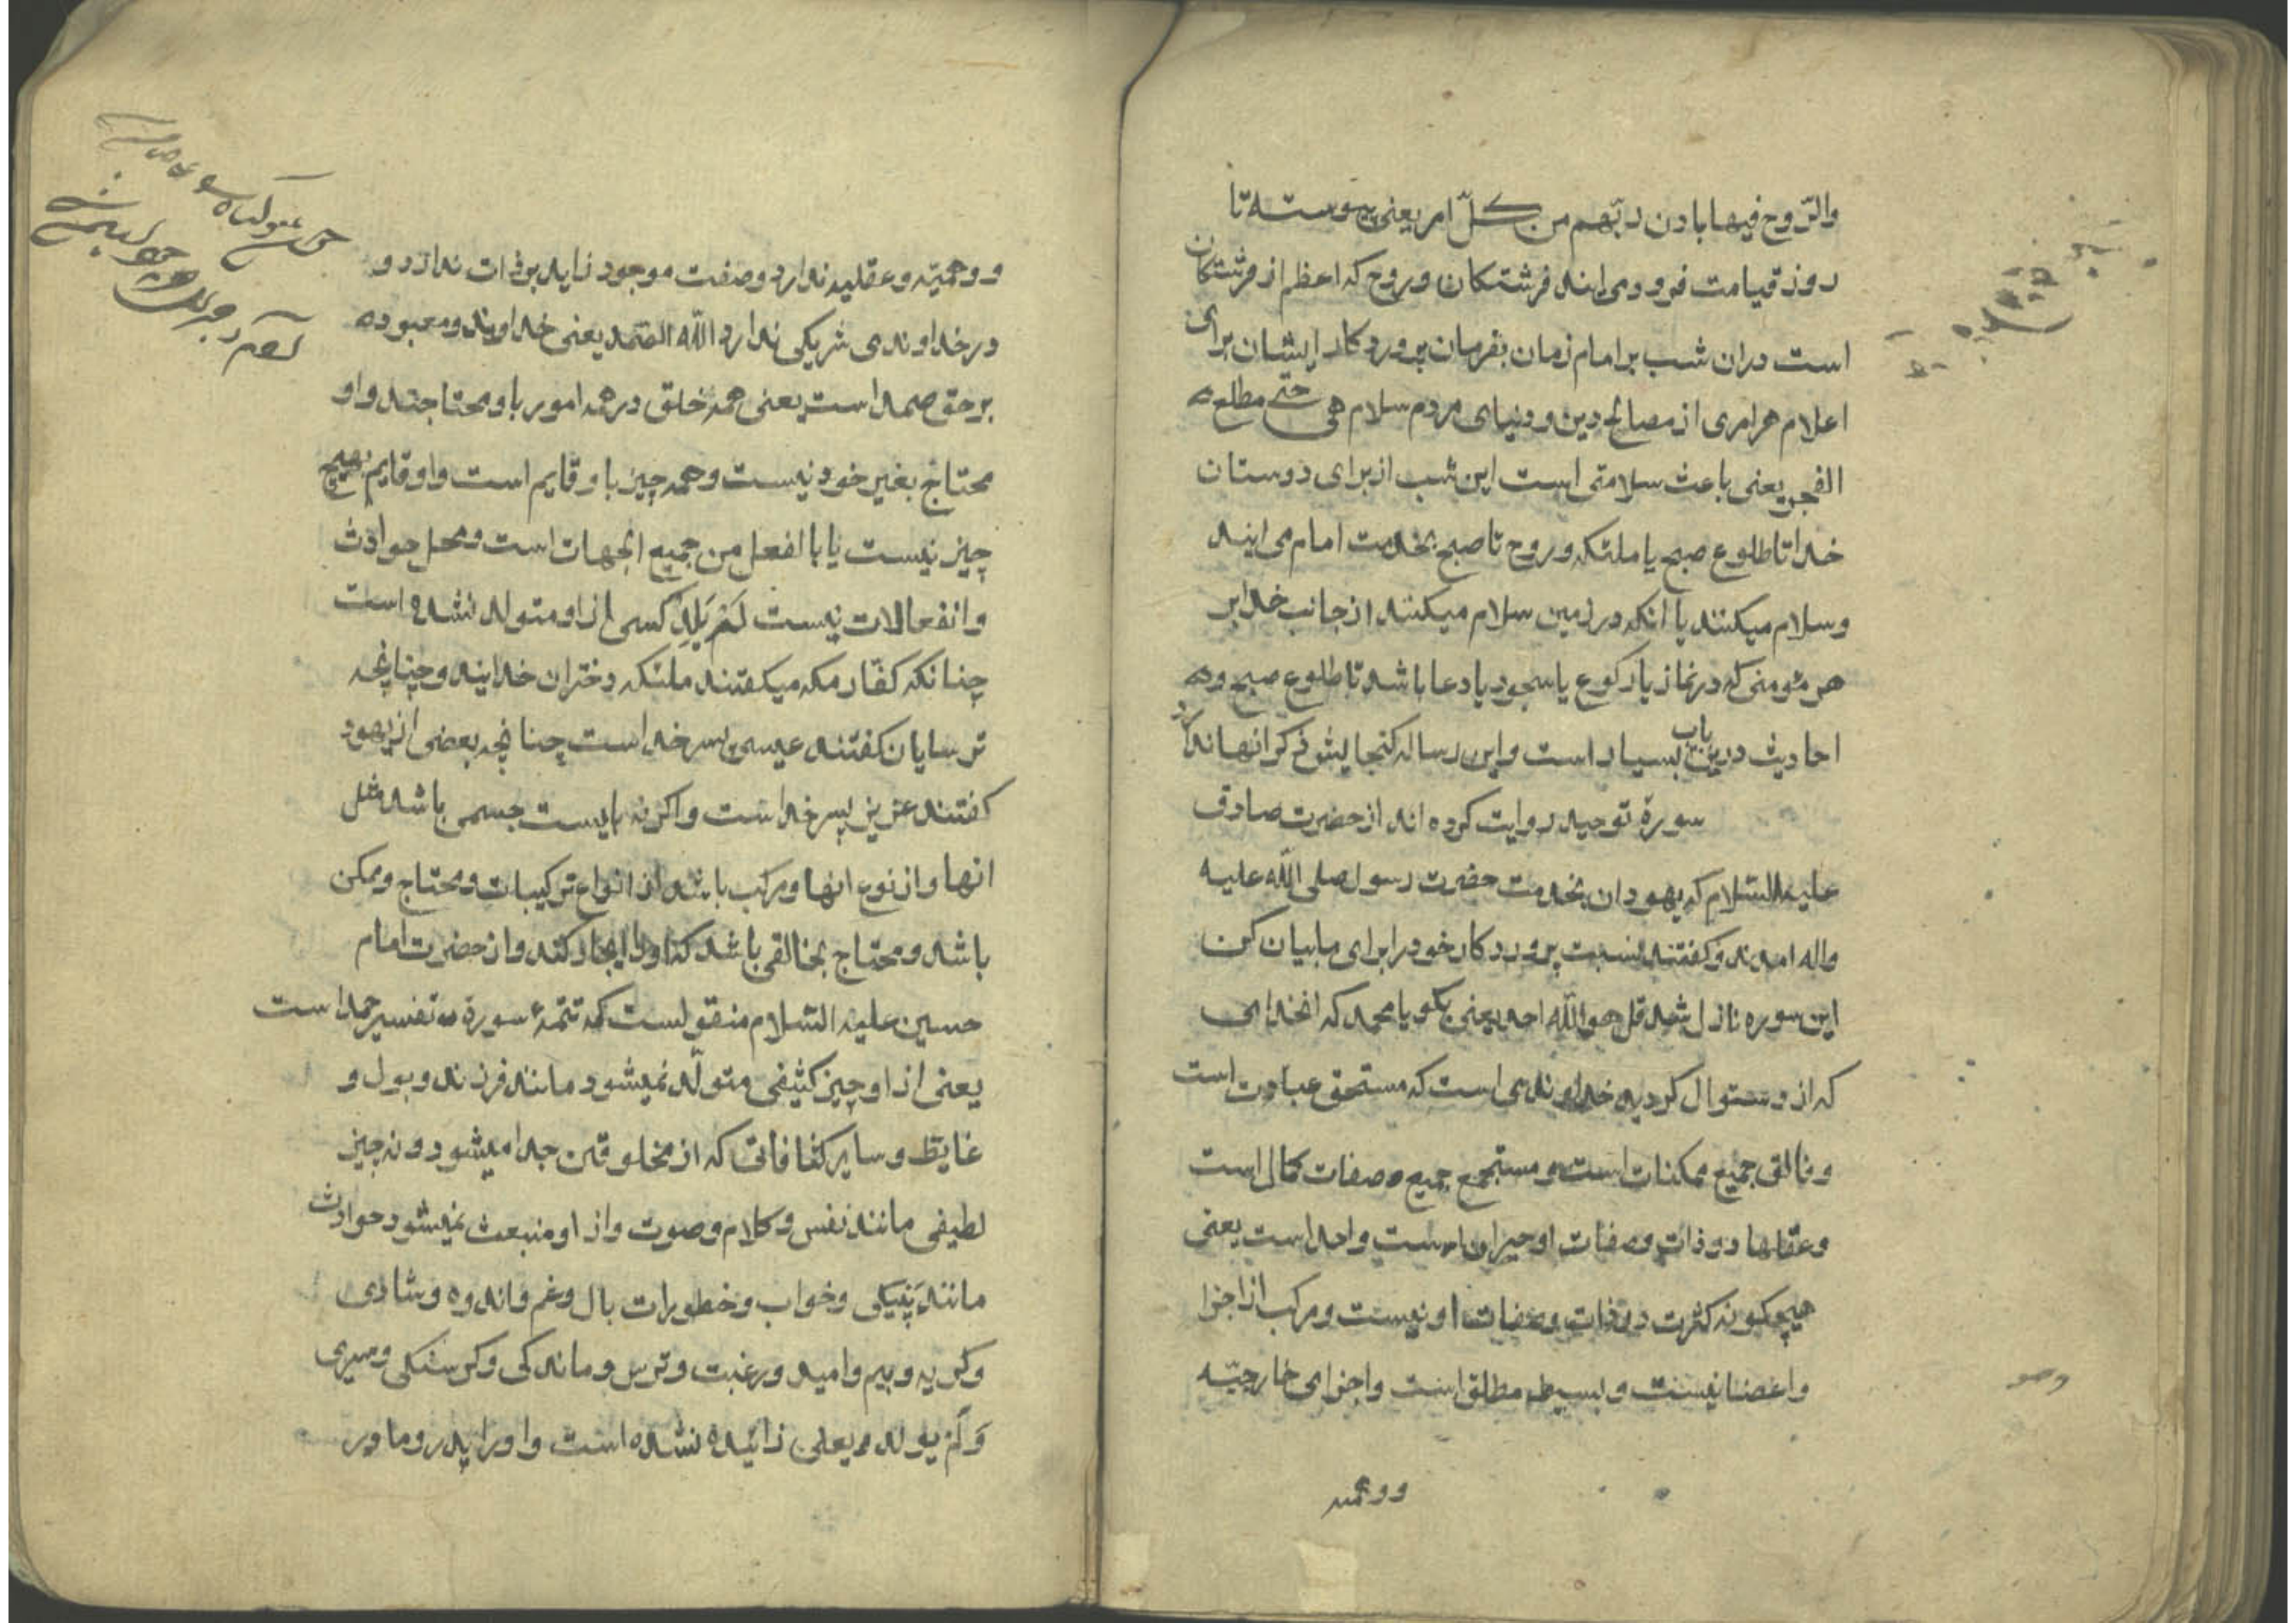 والرّوح فیها بادن ربّهم من کلّ امر یعنی پیوسته تا
روز قیامت فرو می ایند فرشتکان و روح که اعظم از فرشتکان
است دران شب بر امام زمان بفرمان پرورد کار ایشان برای
اعلام هر امری از مصالح دین و دنیای مردم سلام هی حتی مطلع
الفجر یعنی باعث سلامتی است این شب از برای دوستان
خدا تا طلوع صبح یا ملئکه و روح تا صبح بخدمت امام می ایند
و سلام میکنند یا انکه در زمین سلام میکنند از جانب خدا بر
هر مٶمنی که در نماز یا رکوع یا سجود یا دعا باشد تا طلوع صبح و
احادیث درین باب بسیار است و این رساله کنجایش ذکر انها ندارد
سورة توحید روایت کرده اند از حضرت صادق
علیه السّلام که یهودان بخدمت حضرت رسول صلی اللّه علیه
واله امدند و کفتند نسبت پرورد کار خود را برای ما بیان کن
این سوره نازل شد قل هو اللّه احد یعنی بکو یا محمد که انخدای
که از و سئوال کردید خداوندی است که مستحق عبادت است
و خالق جمیع ممکنات است و مستجمع جمیع صفات کمال است
و عقلها در ذات و صفات او حیران است واحد است یعنی
هیچکونه کثرت در ذات و صفات او نیست و مرکب از اجزا
و اعضا نیست و بسیط مطلق است و اجزای خارجیّه
و وهمیّه
و وهمیّه و عقلیه ندارد و صفت موجود زاید بر ذات ندارد و
در خداوندی شریکی ندارد اللّه الصّمد یعنی خداوند و معبود
بر حق صمد است یعنی همه خلق در همه امور باو محتاجند و او
محتاج بغیر خود نیست و همه چیز باو قایم است و او قایم بهیچ
چیز نیست یا بالفعل من جمیع الجهات است و محل حوادث
و انفعالات نیست لَمْ یَلِدْ کسی از او متولد نشده است
چنانکه کفّار مکه میکفتند ملئکه دختران خدایند و چنانچه
ترسایان کفتند عیسی پسر خداست چنانچه بعضی از یهود
کفتند عزیز پسر خداست و اکر نه بایست جسمی باشد مثل
انها و از نوع انها و مرکب باشد از انواع ترکیبات و محتاج و ممکن
باشد و محتاج بخالقی باشد که او را ایجاد کند و از حضرت امام
حسین علیه السّلام منقولست که تتمهٔ سورة تفسیر صمد است
یعنی از او چیز کثیفی متولّد نمیشود مانند فرزند و بول و
غایط و سایر کثافاتی که از مخلوقین جدا میشود و نه چیز
لطیفی مانند نفس و کلام و صوت و از او منبعث نمیشود حوادث
مانند پینکی و خواب و خطورات بال و غم و اندوه و شادی
و کریه و بیم و امید و رغبت و ترس و ماندکی و کرسنکی و سیری
وَ لَمْ یولد یعنی زائیده نشده است و او را پدر و مادر